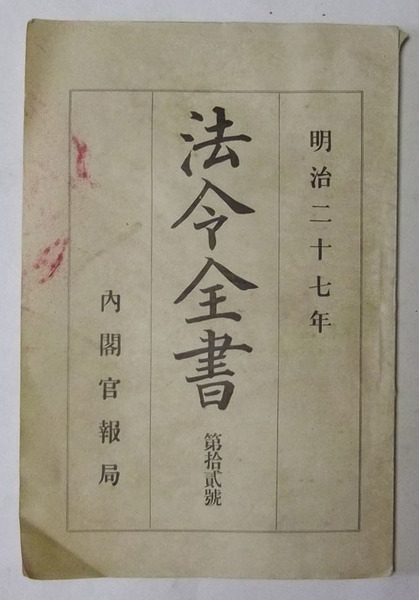 明治二十七年
法令全書 第拾貳號
內閣官報局